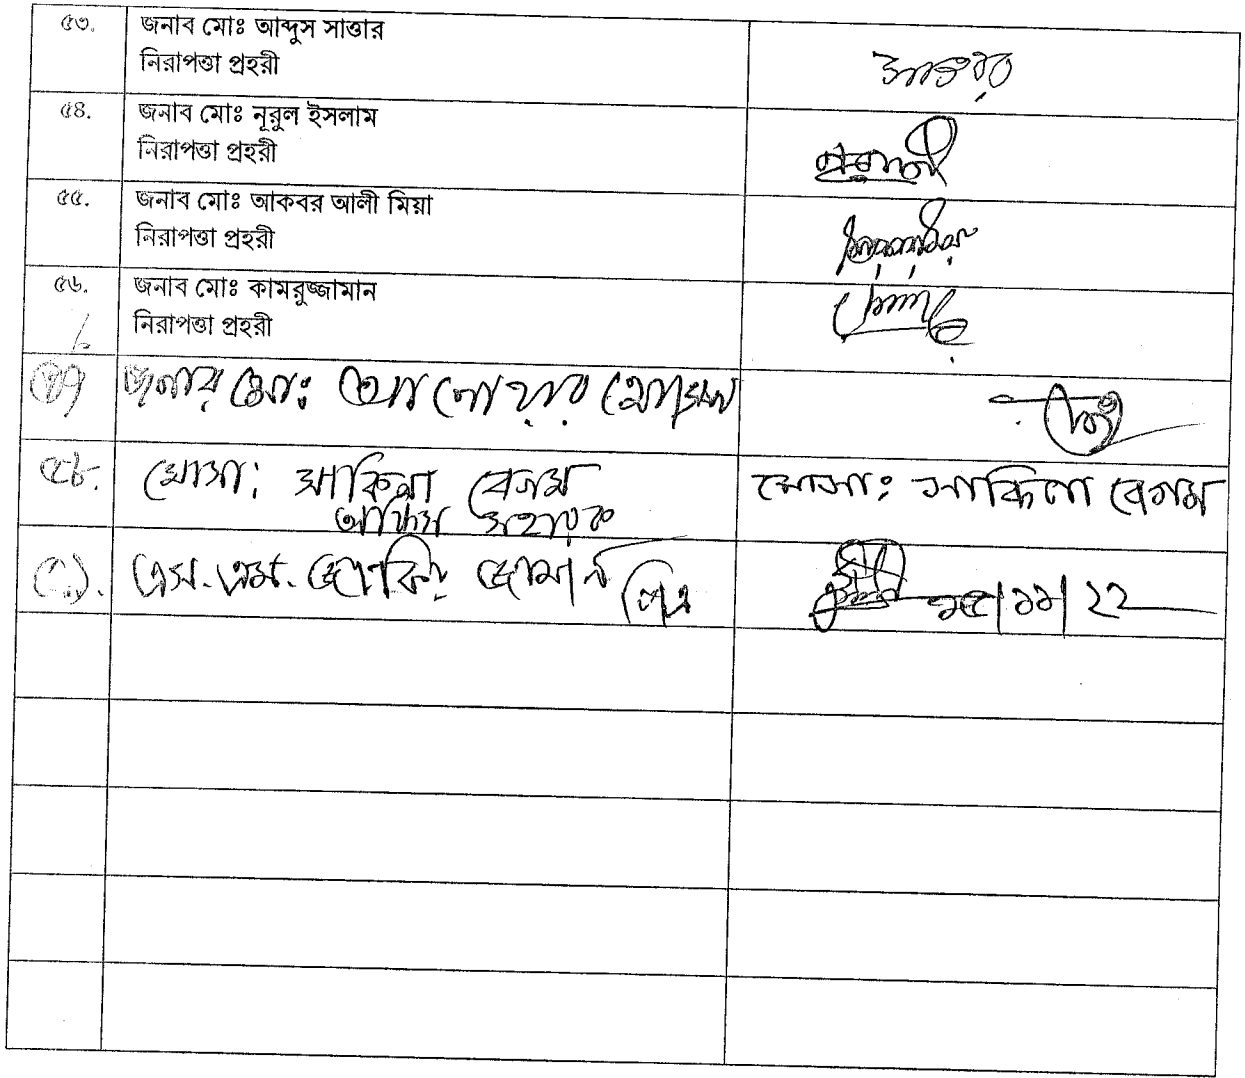 ৫৩. জনাব মোঃ আব্দুস সাত্তার
নিরাপত্তা প্রহরী
৫৪. জনাব মোঃ নূরুল ইসলাম
নিরাপত্তা প্রহরী
৫৫. জনাব মোঃ আকবর আলী মিয়া
নিরাপত্তা প্রহরী
৫৬. জনাব মোঃ কামরুজ্জামান
নিরাপত্তা প্রহরী
৫৭ জনাব মোঃ আনোয়ার হোসেন
৫৮. মোসা: সাকিলা বেগম মোসাঃ সাকিলা বেগম
অফিস সহায়ক
এস.এম. জাকির জামান ১৫/১১/২২